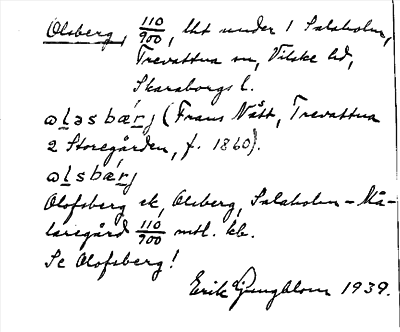 Olsberg, 110/900, lht under 1 Salaholm,
Trevattna sn, Vilske hd,
Skaraborgs l.
ωl̲əsbǽr̲j (Frans Nått, Trevattna
2 Storegården, f. 1860).
ωl̲sbǽr̲j
Olofsberg ek, Olsberg, Salaholm – Må-
laregård 110/900 mtl. kb.
Se Olofsberg!
Erik Ljungblom 1939.